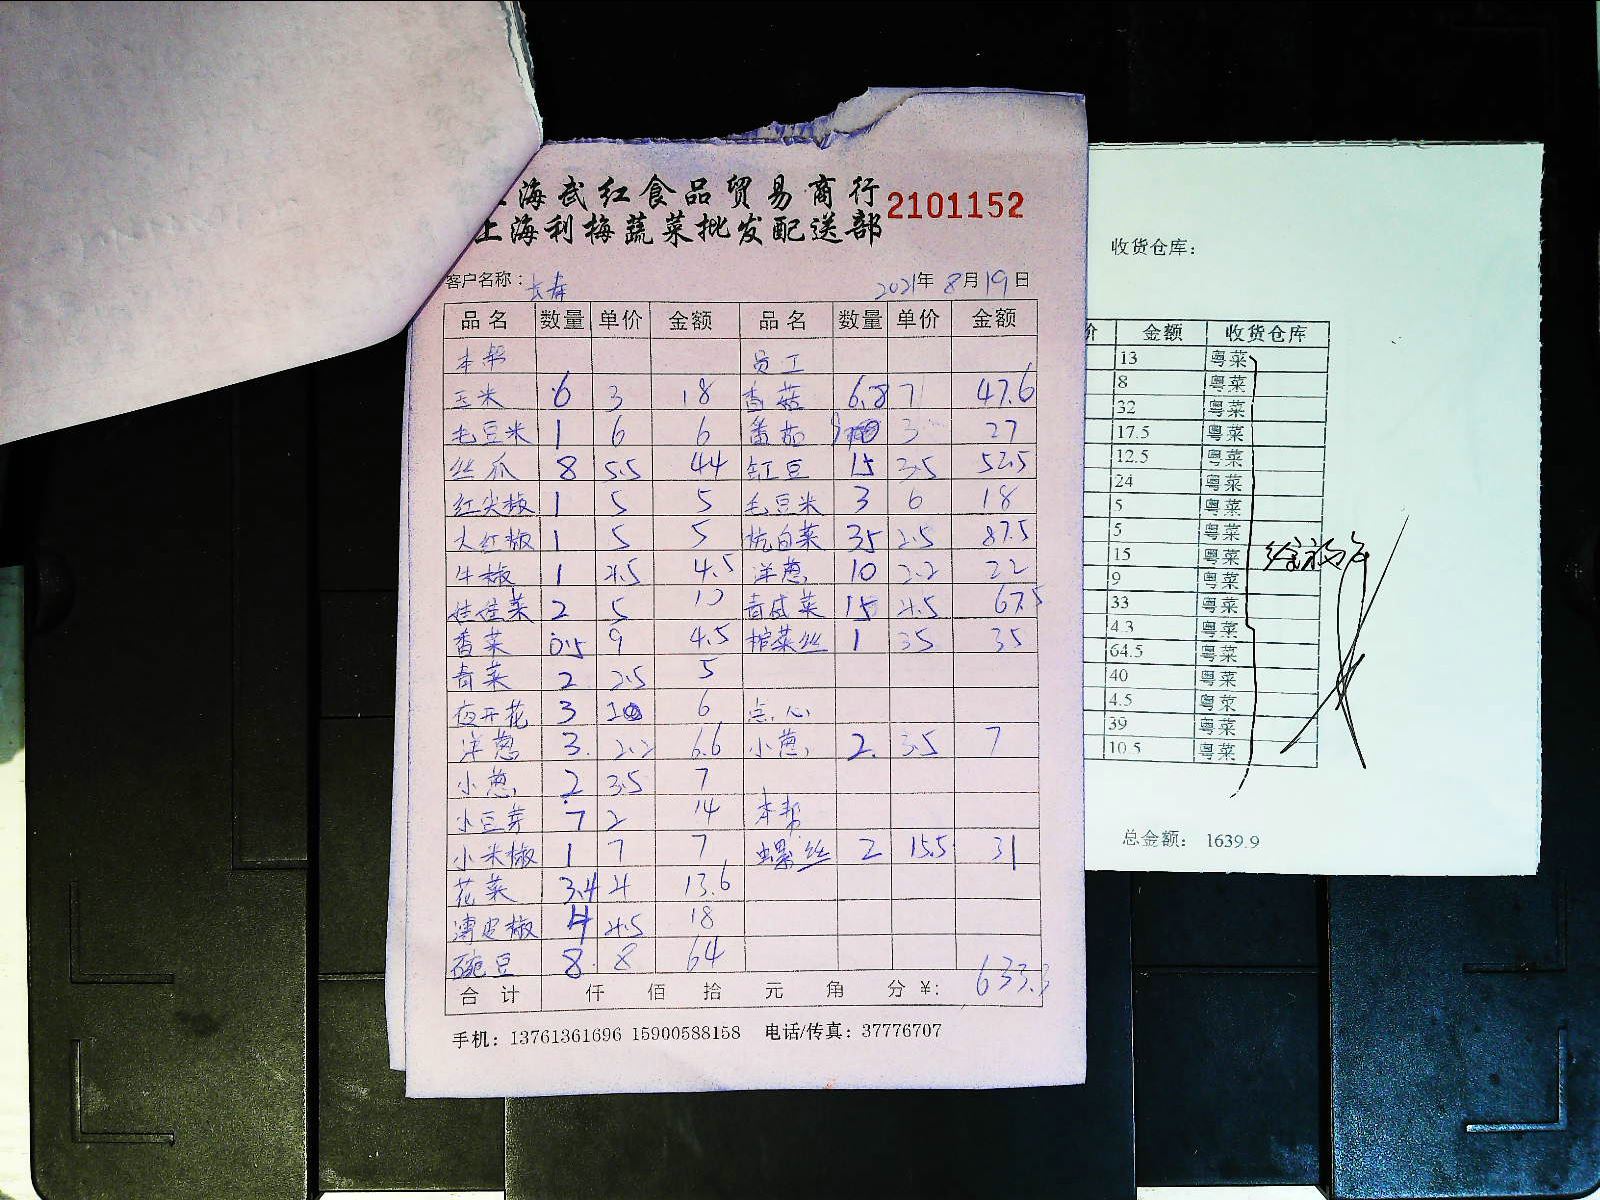 海武红食品贸易商行
上海利梅蔬菜批发配送部
2101152
客户名称： 长寿 2021年 8月19日
品名 数量 单价 金额 品名 数量 单价 金额
本帮 员工
玉米 6 3 18 香菇 6.8 7 47.6
毛豆米 1 6 6 番茄 3 27
丝瓜 8 5.5 44 缸豆 15 3.5 52.5
红尖椒 1 5 5 毛豆米 3 6 18
大红椒 1 5 5 杭白菜 35 2.5 87.5
牛椒 1 4.5 4.5 洋葱 10 2.2 22
娃娃菜 2 5 10 青咸菜 15 4.5 67.5
香菜 0.5 9 4.5 榨菜丝 1 35 35
青菜 2 2.5 5
夜开花 3 6 点心
洋葱 3 2.2 6.6 小葱 2 3.5 7
小葱 2 3.5 7
小豆芽 7 2 14 本帮
小米椒 1 7 7 螺丝 2 15.5 31
花菜 3.4 4 13.6
薄皮椒 4 4.5 18
豌豆 8 8 64
合计 仟 佰 拾 元 角 分 ¥: 633.3
手机：13761361696 15900588158 电话/传真：37776707
收货仓库：
价 金额 收货仓库
13 粤菜
8 粤菜
32 粤菜
17.5 粤菜
12.5 粤菜
24 粤菜
5 粤菜
5 粤菜
15 粤菜
9 粤菜
33 粤菜
4.3 粤菜
64.5 粤菜
40 粤菜
4.5 粤菜
39 粤菜
10.5 粤菜
总金额： 1639.9